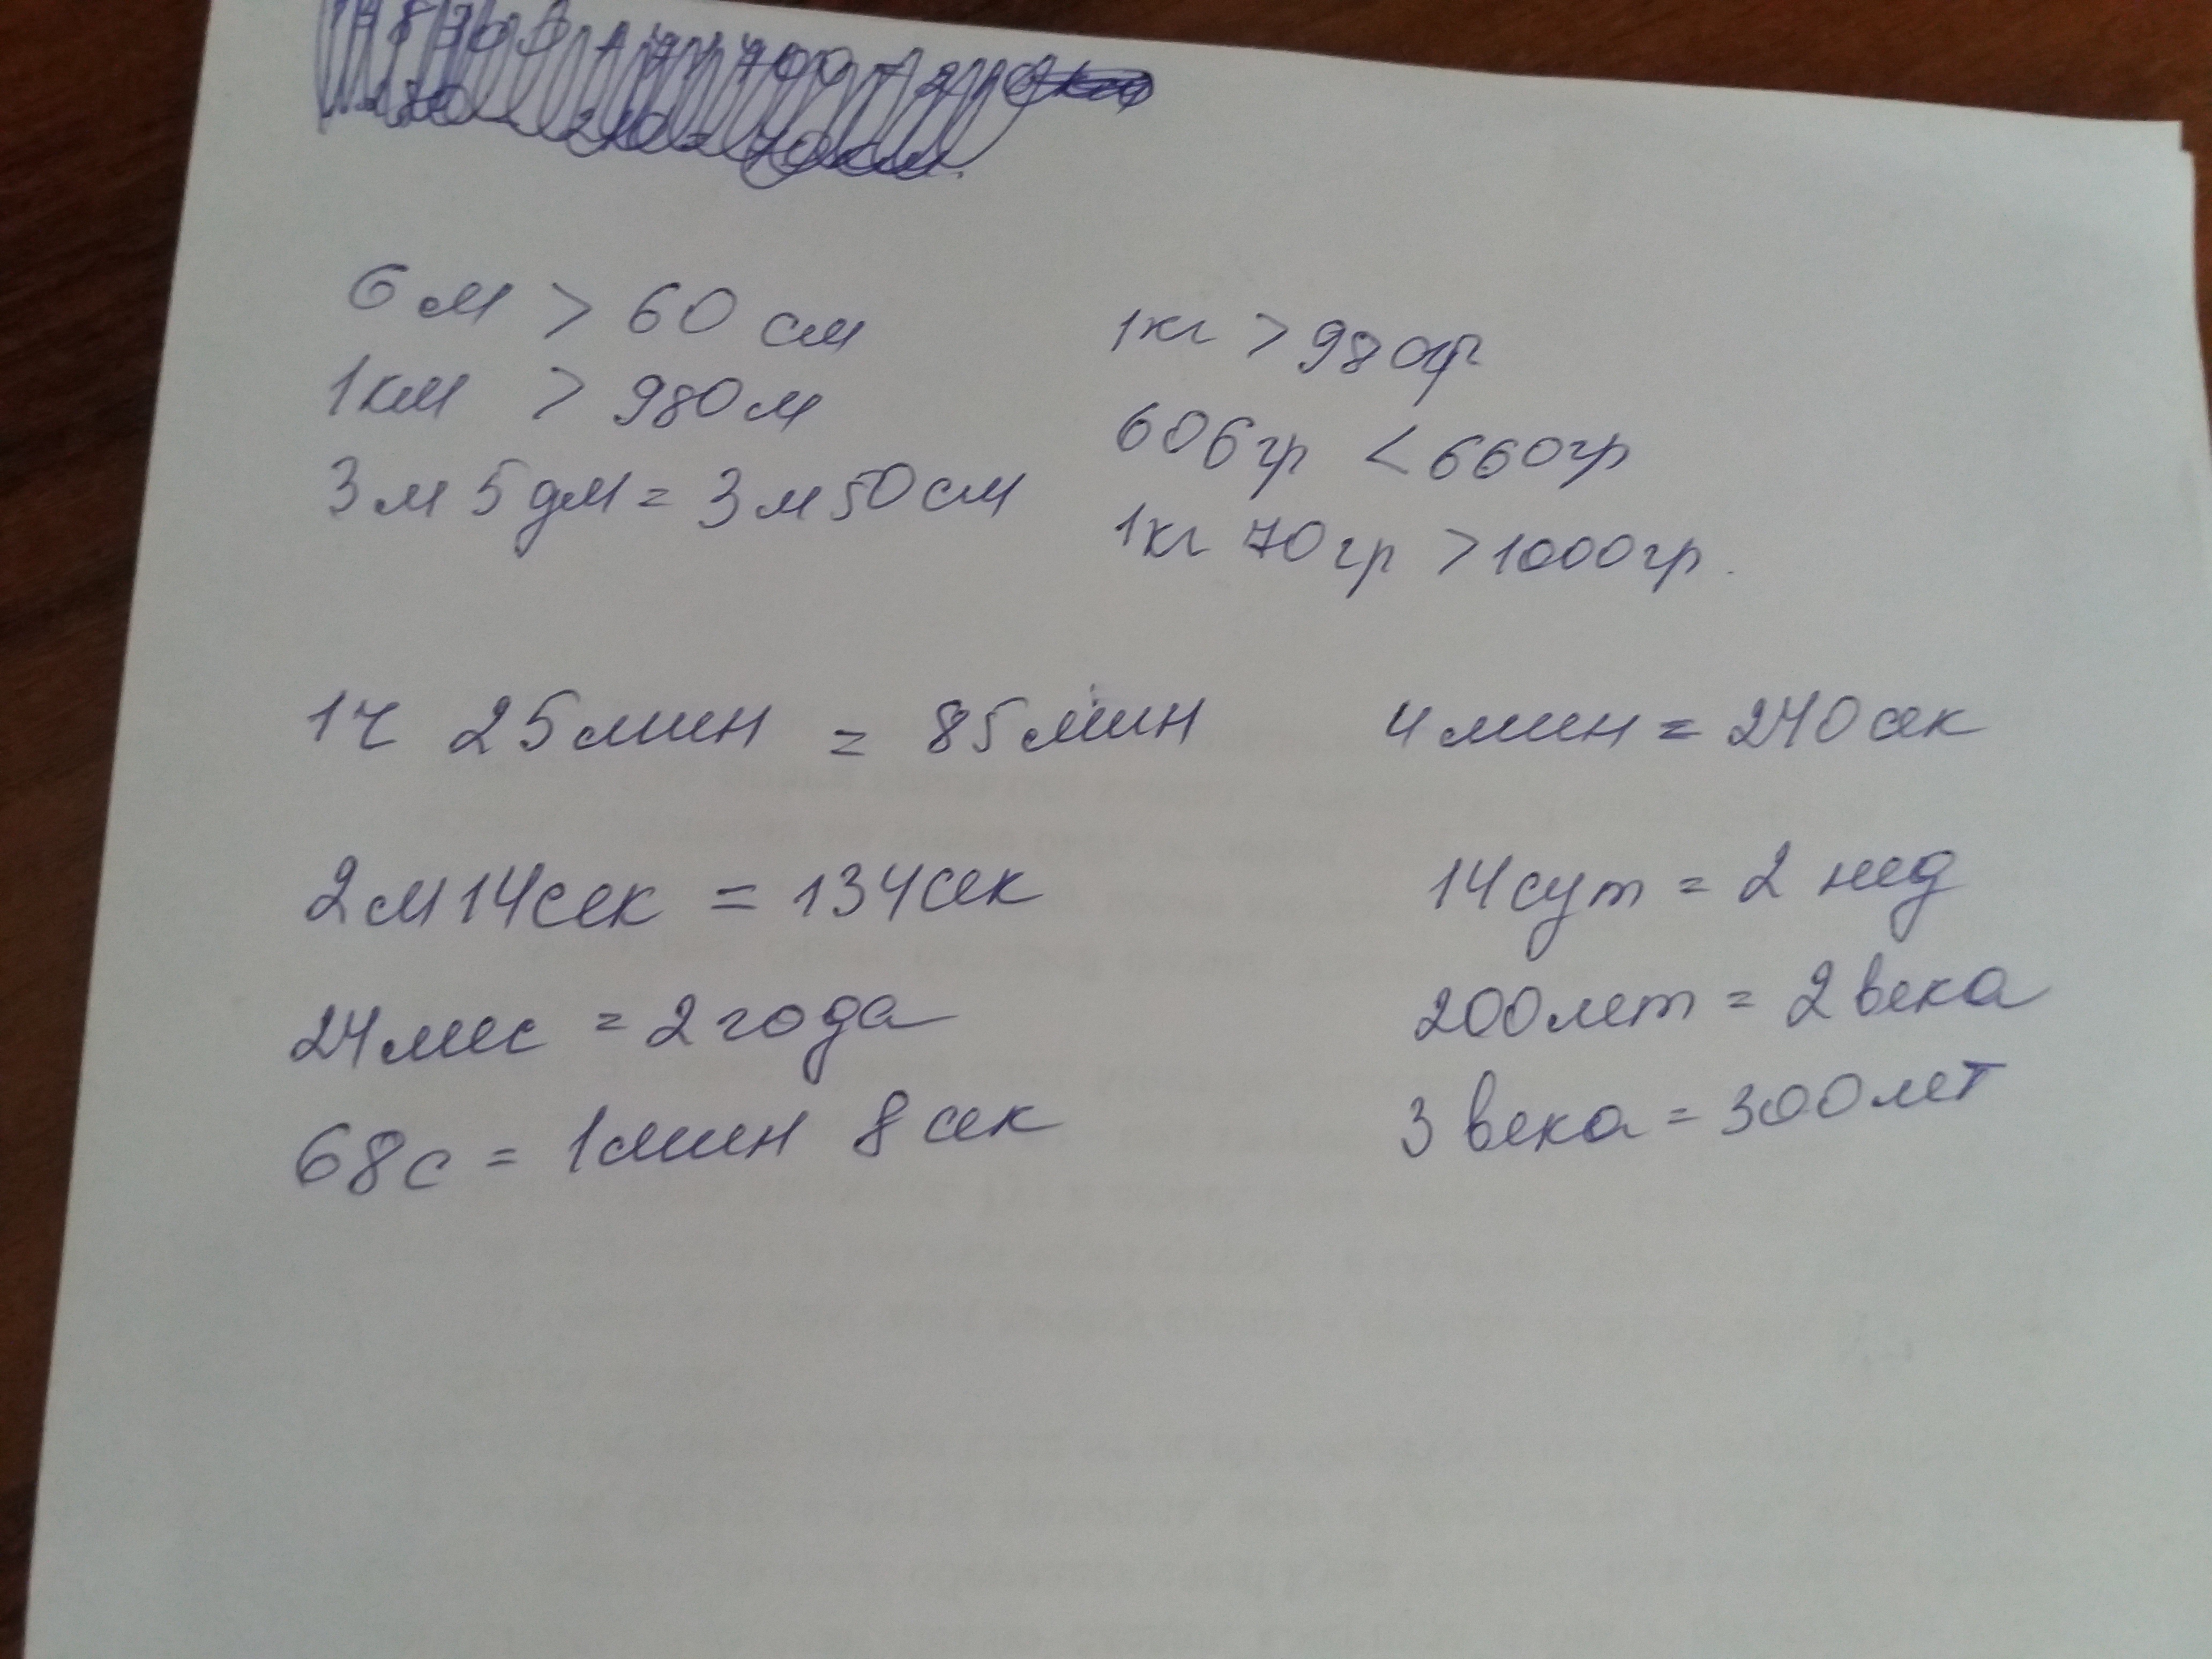 6 м > 60 см
1 км > 980 м
3 м 5 дм = 3 м 50 см
1 кг > 980 гр
606 гр < 660 гр
1 кг 70 гр > 1000 гр.
1 ч 25 мин = 85 мин
2 м 14 сек = 134 сек
24 мес = 2 года
68 с = 1 мин 8 сек
4 мин = 240 сек
14 сут = 2 нед
200 лет = 2 века
3 века = 300 лет